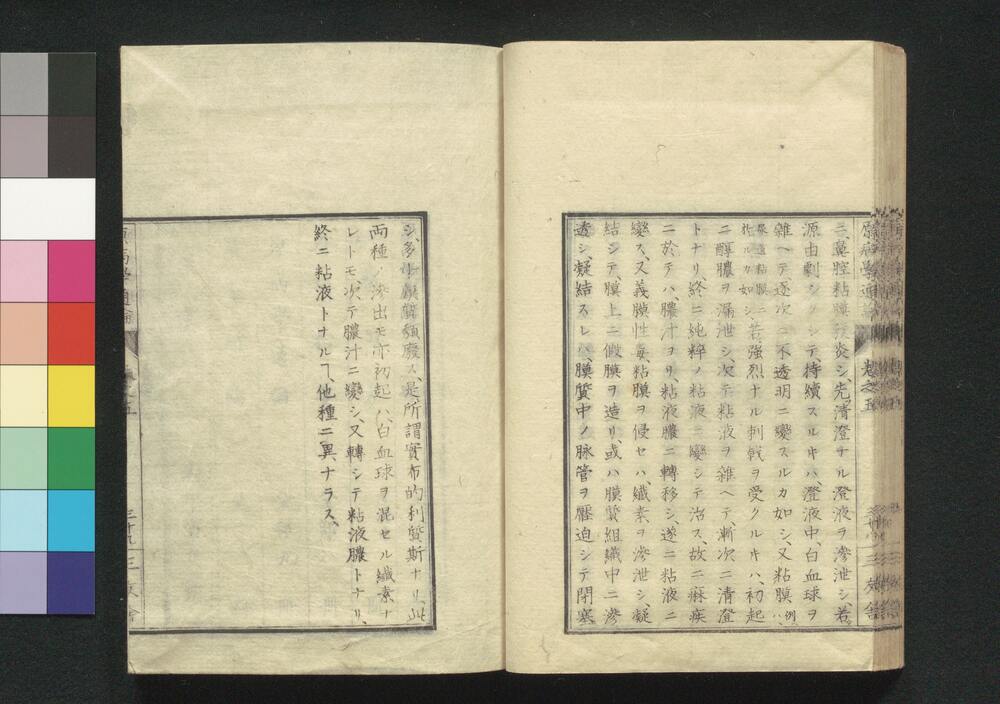 ニ、鼻腔粘膜ノ炎シ、先清澄ナル澄液ヲ滲泄シ、若
源由劇シクシテ、持續スルキハ、澄液中、白血球ヲ
雜ヘテ逐次ニ不透明ニ變スルカ如シ、又粘膜例ハ
尿道粘膜ニ
於ルカ如シニ若强烈ナル刺戟ヲ受クルキハ、初起
ニ醇膿ヲ漏泄シ、次テ粘液ヲ雜ヘテ、漸次ニ清澄
トナリ、終ニ純粹ノ粘液ニ變シテ治ス、故ニ痳疾
ニ於テハ、膿汁ヨリ、粘液膿ニ轉移シ、遂ニ粘液ニ
變ス、又義膜性毒、粘膜ヲ侵セハ、纖素ヲ滲泄シ、凝
結シテ、膜上ニ假膜ヲ造リ、或ハ膜質組織中ニ滲
透シ、凝結スレハ、膜質中ノ脉管ヲ壓迫シテ閉塞
原病學通論 卷之五
三友舍
シ、多少膜質頽廢ス、是所謂實布的利質斯ナリ、此
兩種ノ滲出モ亦初起ハ、白血球ヲ混セル纖素ナ
レトモ、次テ膿汁ニ變シ、又轉シテ粘液膿トナリ、
終ニ粘液トナルヿ、他種ニ異ナラス、